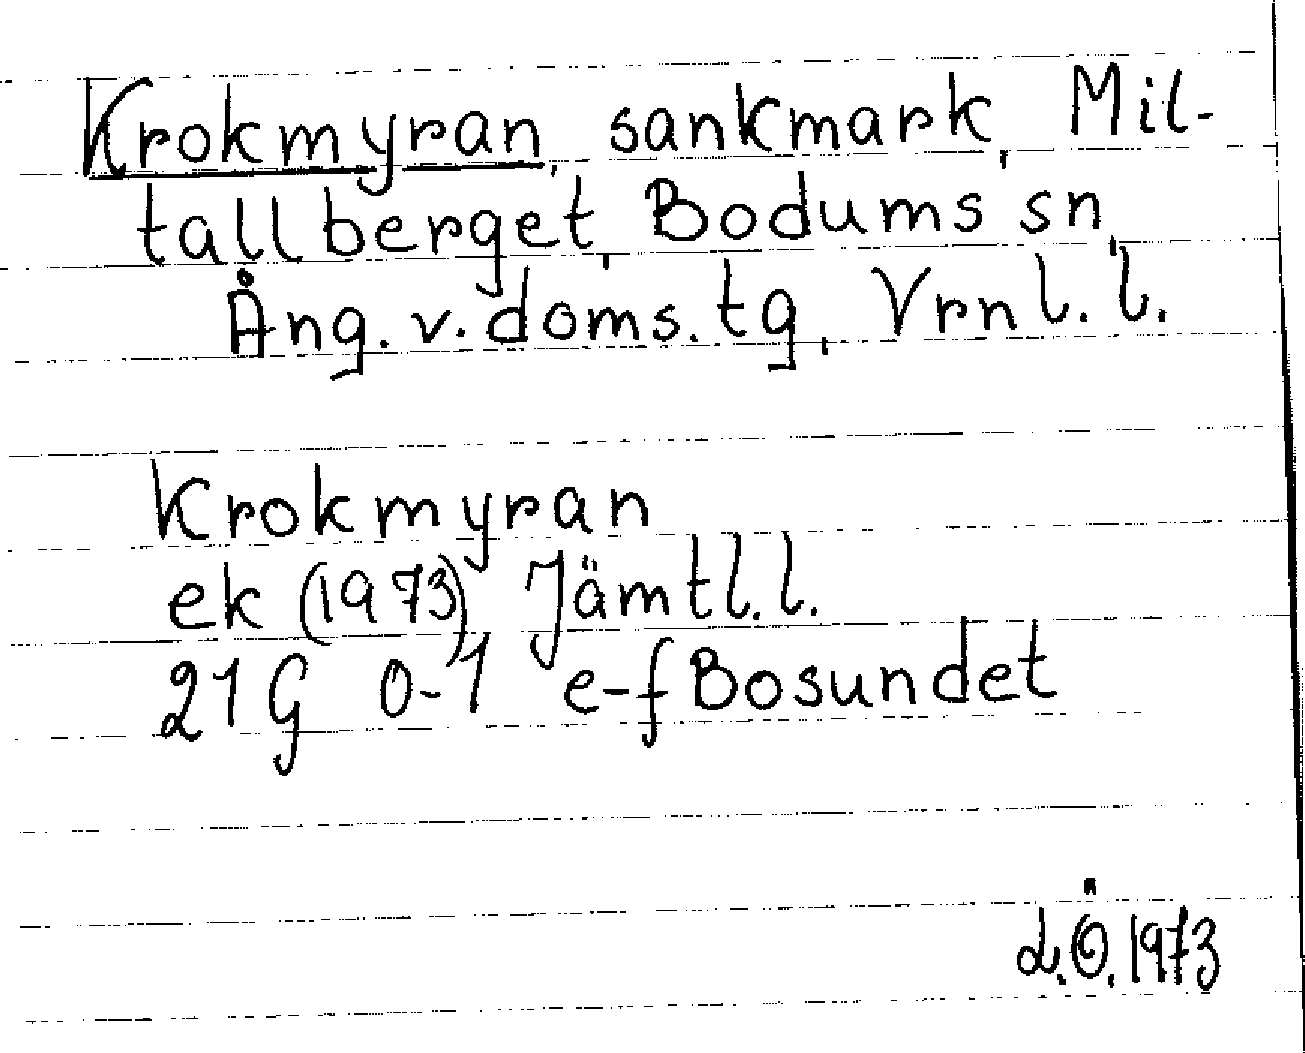 Krokmyran, sankmark, Mil-
tallberget, Bodums sn,
Ång. v. doms. tg, Vrnl. l.
Krokmyran
ek (1973), Jämtl. l.
21G 0-1 e-f Bosundet
L.Ö. 1973